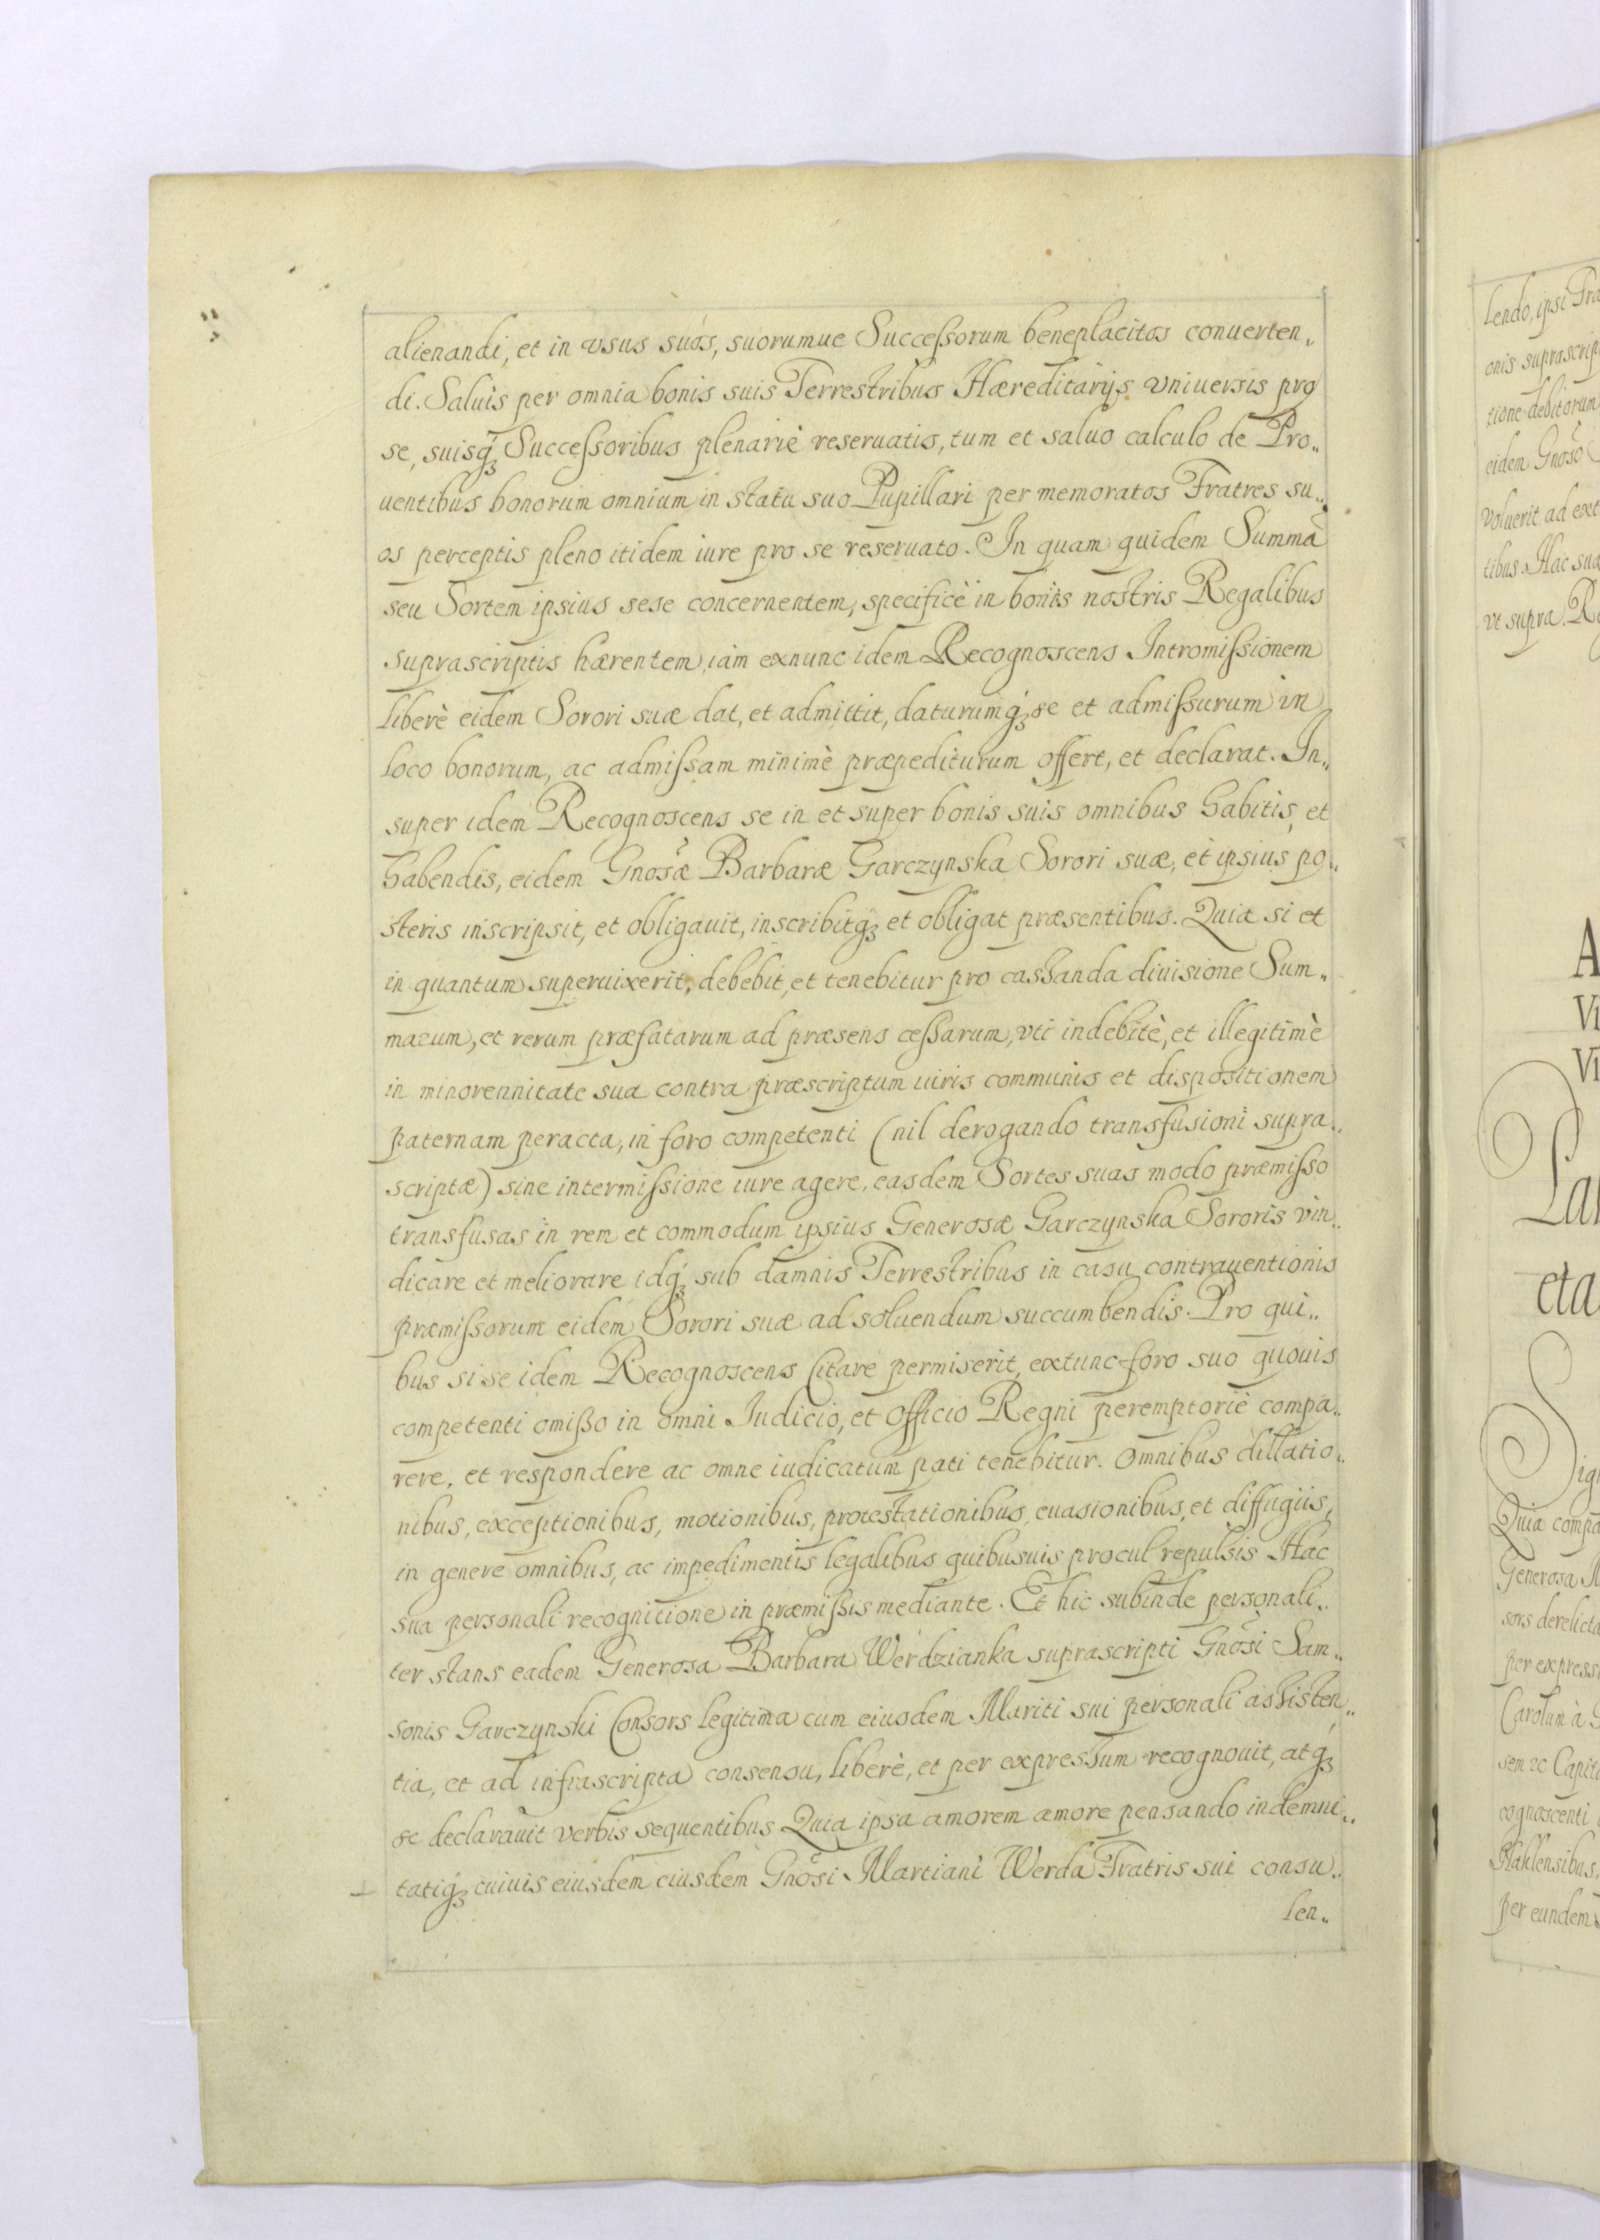 alienandi, et in vsus suos, suorumue Successorum beneplacitos conuerten„
di. Saluis per omnia bonis suis Terrestribus Hæreditarijs vniuersis pro
se, suisqꝫ Successoribus plenariè reseruatis, tum et saluo calculo de Pro„
uentibus bonorum omnium in statu suo Pupillari per memoratos Fratres su„
os perceptis pleno itidem iure pro se reseruato. In quam quidem Summã
seu Sortem ipsius sese concernentem, specificè in bonis nostris Regalibus
suprascriptis hærentem, iàm exnunc idem Recognoscens Intromissionem
liberè eidem Sorori suæ dat, et admittit, daturumqꝫ se et admissurum in
loco bonorum, ac admissam minimè præpediturum offert, et declarat. In„
super idem Recognoscens se in et super bonis suis omnibus habitis, et
habendis, eidem Gnosæ Barbaræ Garczynska Sorori suæ, et ipsius po„
steris inscripsit, et obligauit, inscribitqꝫ et obligat præsentibus. Quia si et
in quantum superuixerit, debebit, et tenebitur pro cassanda diuisione Sum„
marum, et rerum præfatarum ad præsens cessarum, vti indebitè, et illegitimè
in minorennitate sua contra præscriptum iuris communis et dispositionem
paternam peracta, in foro competenti (nil derogando transfusioni supra„
scriptæ) sine intermissione iure agere, easdem Sortes suas modo præmisso
transfusas in rem et commodum ipsius Generosæ Garczynska Sororis vin„
dicare et meliorare idqꝫ sub damnis Terrestribus in casu contrauentionis
præmissorum eidem Sorori suæ ad soluendum succumbendis. Pro qui„
bus si se idem Recognoscens Citare permiserit, extunc foro suo quouis
competenti omisso in omni Iudicio, et Officio Regni peremptoriè compa„
rere, et respondere ac omne iudicatum pati tenebitur. Omnibus dillatio„
nibus, exceptionibus, motionibus, protestationibus, euasionibus, et diffugiis,
in genere omnibus, ac impedimentis legalibus quibusuis procul repulsis Hac
sua personali recognitione in præmissis mediante. Et hic subinde personali„
ter stans eadem Generosa Barbara Werdzianka suprascripti Gnosi Sam„
sonis Garczynski Consors legitima cum eiusdem Mariti sui personali assisten„
tia, et ad infrascripta consensu, liberè, et per expressum recognouit, atqꝫ
se declarauit verbis sequentibus Quia ipsa amorem amore pensando indemni„
tatiqꝫ cuiuis eiusdem eiusdem Gnosi Martiani Werda Fratris sui consu„
len„
lendo, ipsi Fra
onis suprascrip
tione debitorum
eidem Gnoso
voluerit ad ext
tibus. Hac sua
vt supra. Re
A
VI
VI
Lau
eta
Sig
Quia compa
Generosa M
sors derelicta
per express
Carolum à G
sem ꝛc Capit
cognoscenti
per eundem